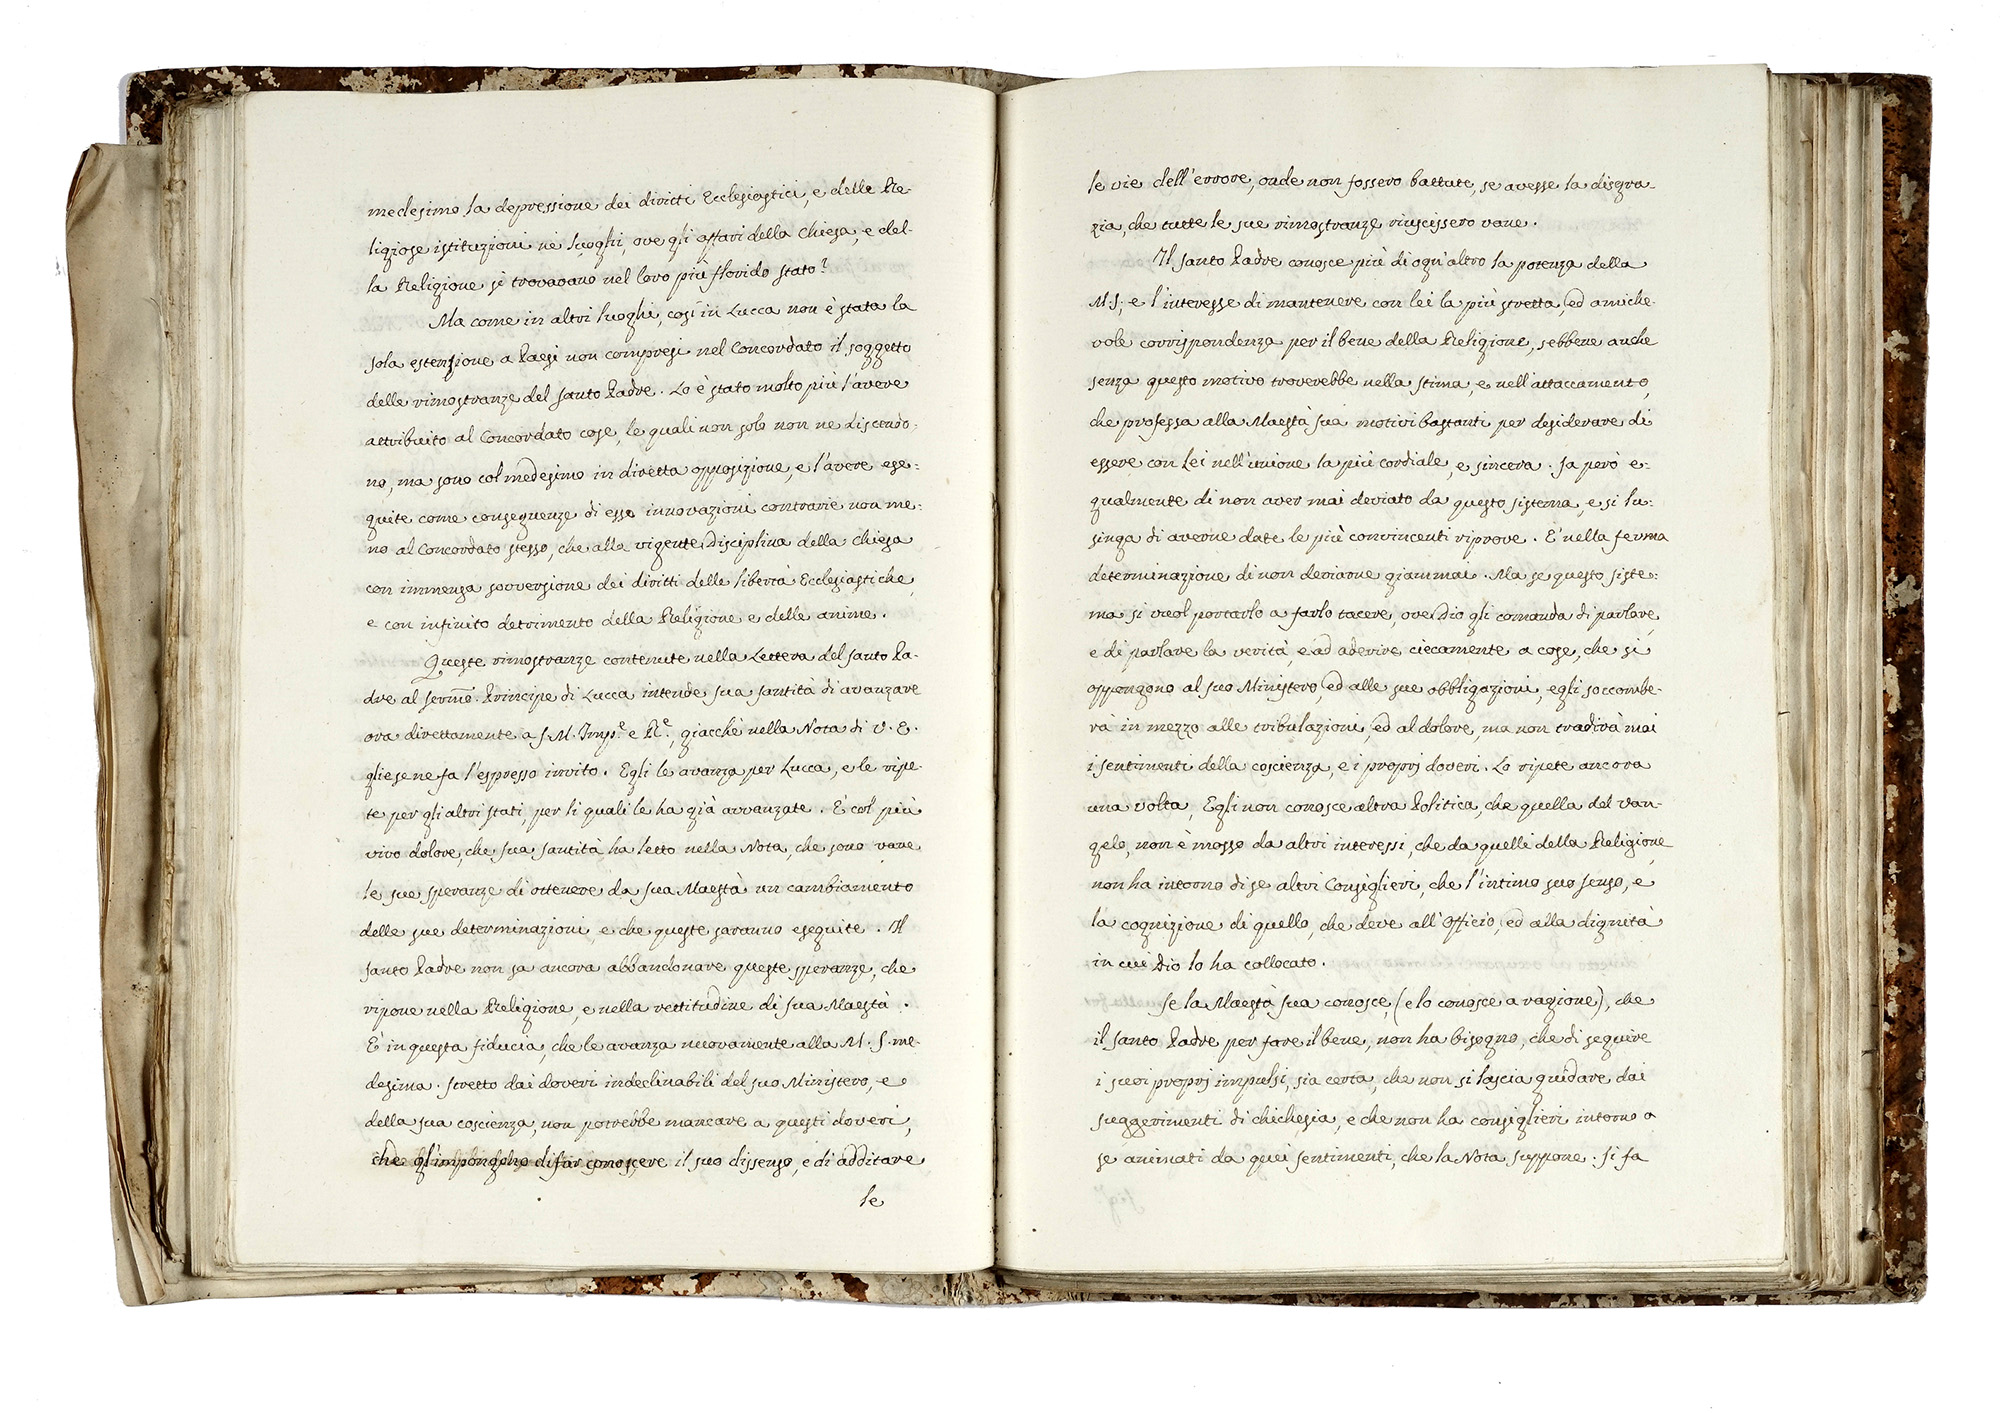 medesimo la depressione dei diritti Ecclesiastici, e delle Re-
ligiose istituzioni ne' luoghi, ove gli affari della Chiesa, e del-
la Religione si trovavano nel loro più florido stato?
Ma come in altri luoghi, così in Lucca non è stata la
sola estensione a Paesi non compresi nel Concordato il soggetto
delle rimostranze del Santo Padre. Lo è stato molto più l'avere
attribuito al Concordato cose, le quali non solo non ne discendo-
no, ma sono col medesimo in diretta opposizione, e l'avere ese-
guite come conseguenze di esso innovazioni contrarie non me-
no al Concordato stesso, che alla vigente Disciplina della Chiesa
con immensa sovversione dei diritti delle libertà Ecclesiastiche,
e con infinito detrimento della Religione e delle anime.
Queste rimostranze contenute nella Lettera del Santo Pa-
dre al Sermo. Principe di Lucca intende Sua Santità di avanzare
ora direttamente a S. M. Imp.e e R.e, giacchè nella Nota di V. E.
gliesene fa l'espresso invito. Egli le avanza per Lucca, e le ripe-
te per gli altri stati, per li quali le ha già avvanzate. È col più
vivo dolore, che Sua Santità ha letto nella Nota, che sono vane
le sue speranze di ottenere da Sua Maestà un cambiamento
delle sue determinazioni, e che queste saranno eseguite. Il
Santo Padre non sa ancora abbandonare queste speranze, che
ripone nella Religione, e nella rettitudine di Sua Maestà.
È in questa fiducia, che le avanza nuovamente alla M. S. me-
desima. Stretto dai doveri indeclinabili del suo Ministero, e
della sua coscienza, non potrebbe mancare a questi doveri,
che gl'impongono di far conoscere il suo dissenso, e di additare
le
le vie dell'errore, onde non fossero battute, se avesse la disgra-
zia, che tutte le sue rimostranze riuscissero vane.
Il Santo Padre conosce più di ogn'altro la potenza della
M. S., e l'interesse di mantenere con lei la più stretta, ed amiche-
vole corrispondenza per il bene della Religione, sebbene anche
senza questo motivo troverebbe nella stima, e nell'attaccamento,
che professa alla Maestà Sua motivi bastanti per desiderare di
essere con Lei nell'unione la più cordiale, e sincera. Sa però e-
gualmente di non aver mai deviato da questo sistema, e si lu-
singa di averne date le più convincenti riprove. È nella ferma
determinazione di non deviarne giammai. Ma se questo siste-
ma si vuol portarlo a farlo tacere, ove Dio gli comanda di parlare,
e di parlare la verità, e ad aderire ciecamente a cose, che si
oppongono al suo Ministero, ed alle sue obbligazioni, egli soccombe-
rà in mezzo alle tribulazioni, ed al dolore, ma non tradirà mai
i sentimenti della coscienza, e i proprj doveri. Lo ripete ancora
una volta, Egli non conosce altra Politica, che quella del Van-
gelo, non è mosso da altri interessi, che da quelli della Religione,
non ha intorno di se altri Consiglieri, che l'intimo suo senso, e
la cognizione di quello, che deve all'Officio, ed alla dignità
in cui Dio lo ha collocato.
Se la Maestà Sua conosce, (e lo conosce a ragione), che
il Santo Padre per fare il bene, non ha bisogno, che di seguire
i suoi proprj impulsi, sia certa, che non si lascia guidare dai
suggerimenti di chichesia, e che non ha consiglieri intorno a
se animati da quei sentimenti, che la Nota suppone. Si fa